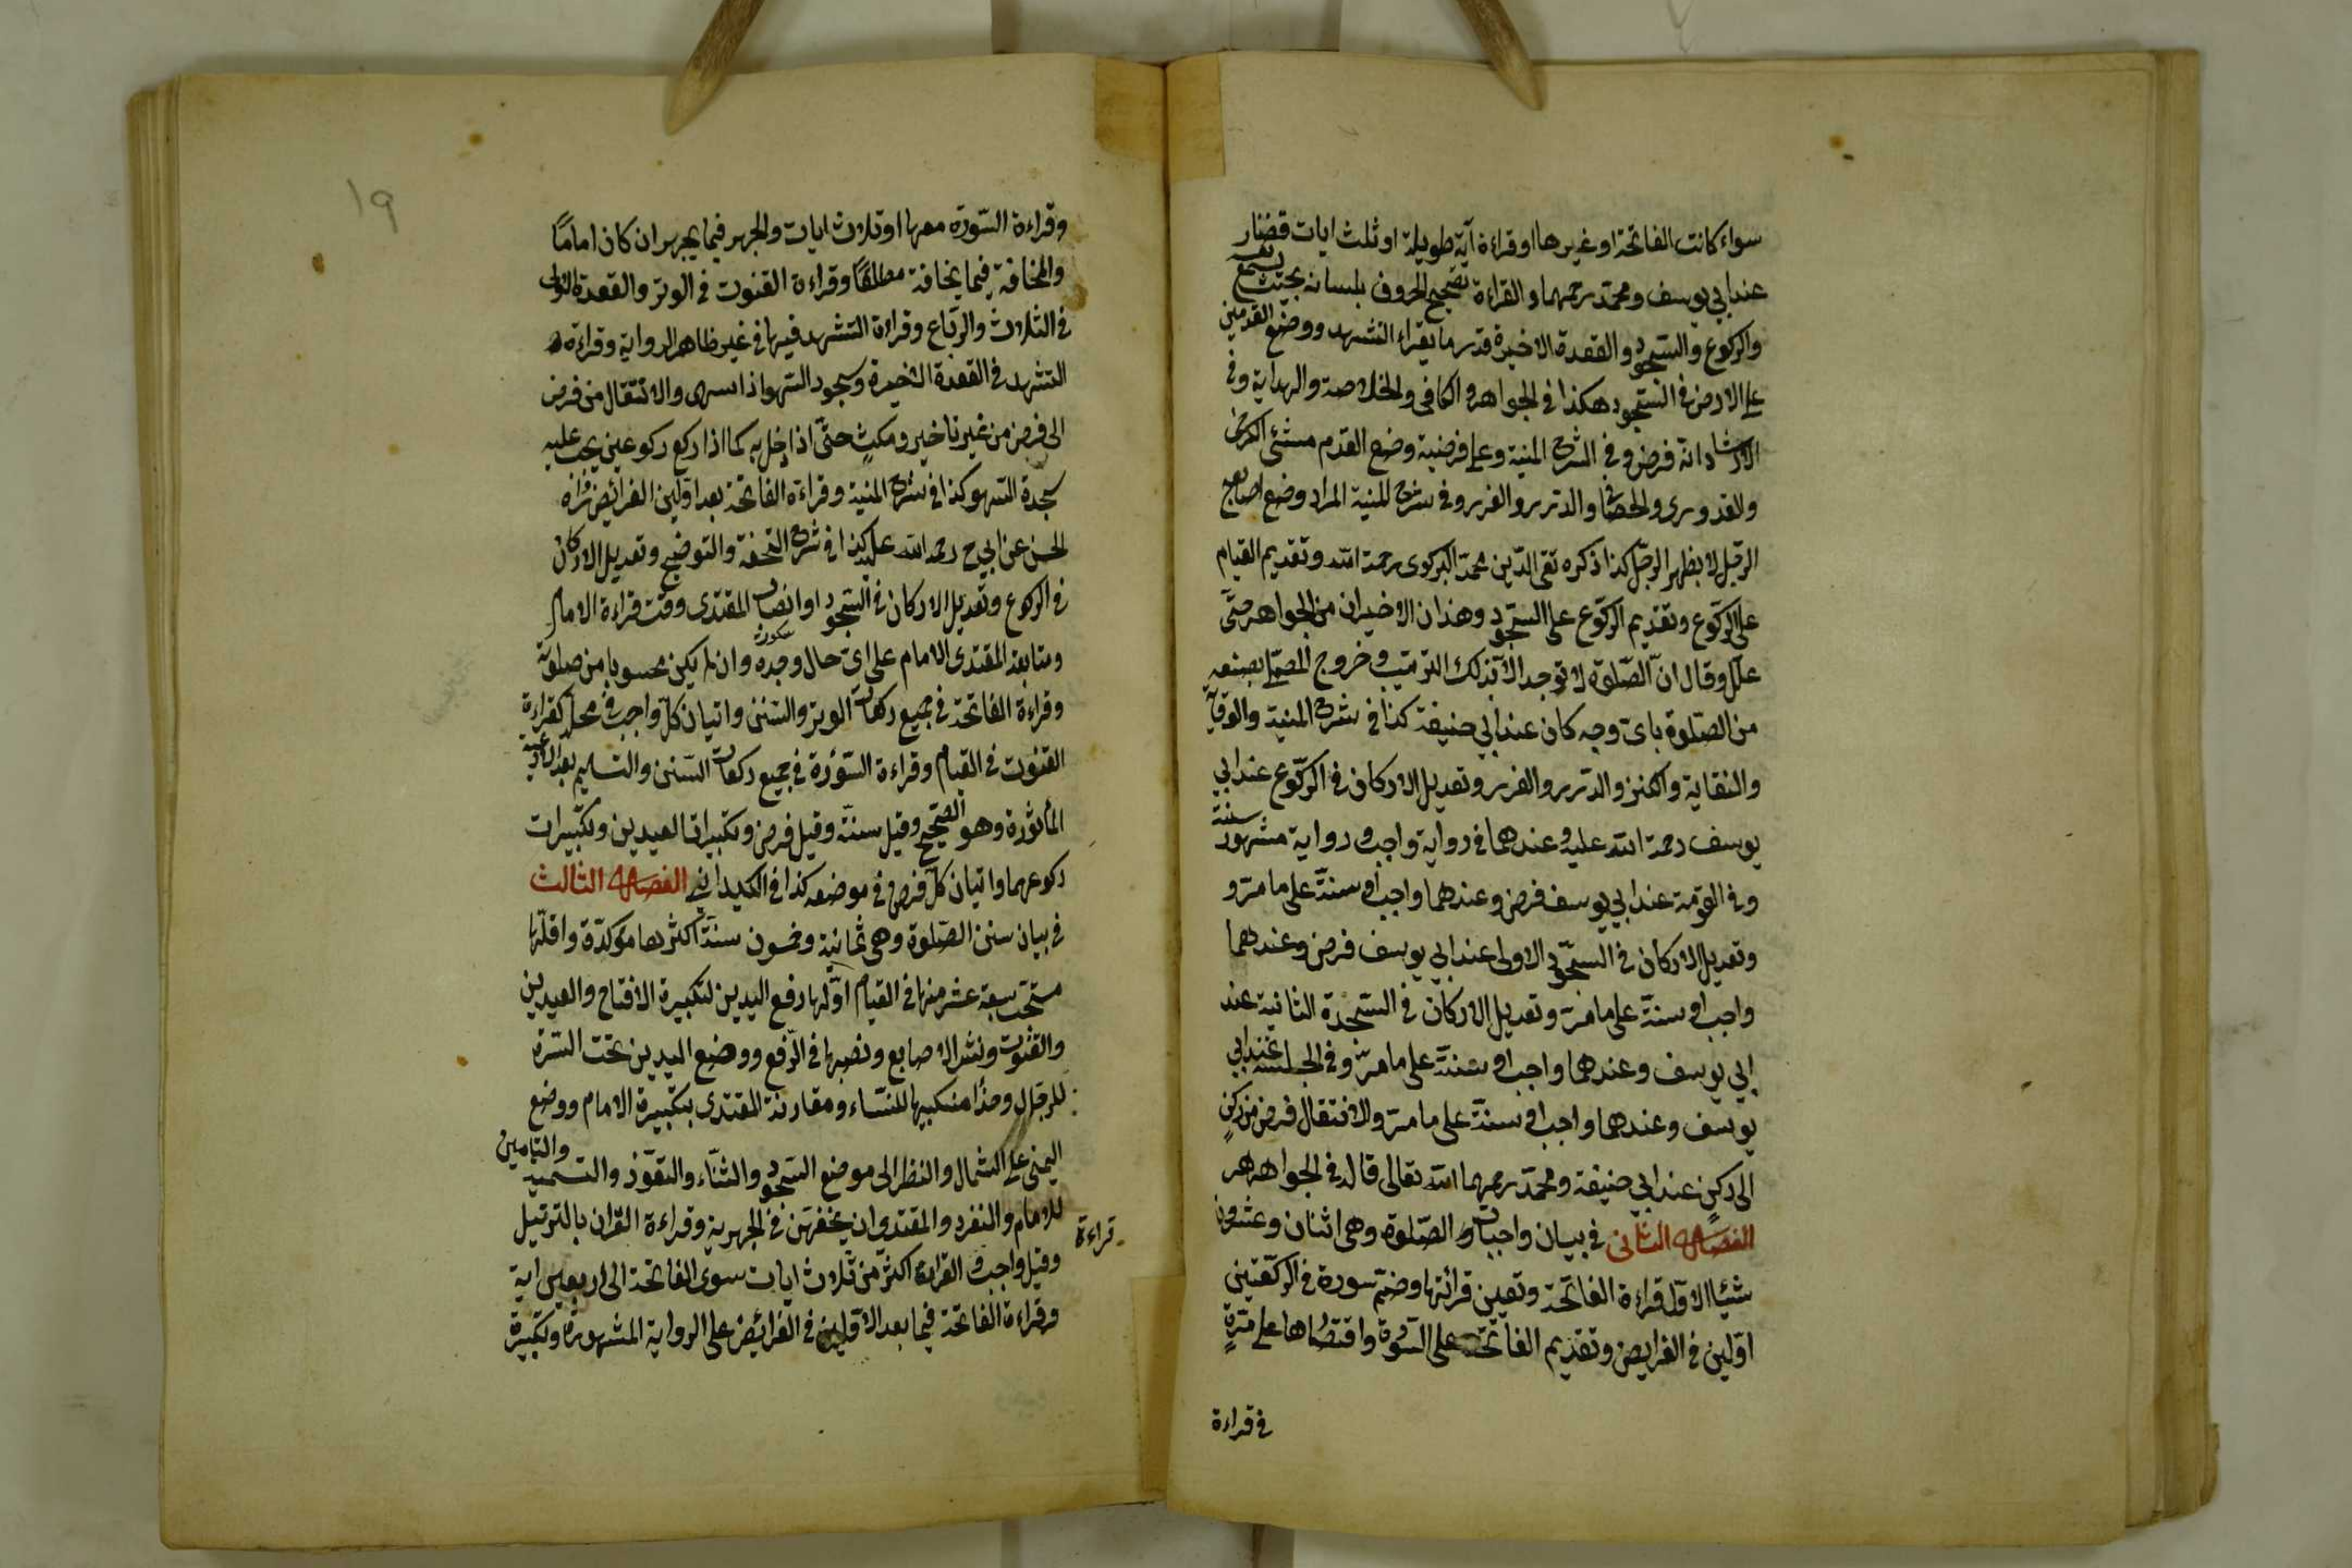 سواء كانت الفاتحة او غيرها او قراءة آية طويلة او ثلث ايات قصار
عند ابي يوسف ومحمد رحمهما والقراءة تصحيح الحروف بلسانه بحيث يسمع نفسه
والركوع والسجود والقعدة الاخيرة قدر ما يقراء التشهد ووضع القدمين
على الارض في السجود هكذا في الجواهر والكافي والخلاصة والهداية وفي
انه فرض وفي الشرح المنية وعلى فرضية وضع القدم مشى الكرخى
والقدورى والدرر والغرر وفي شرح المنية المراد وضع اصابع
الرجل لا بظهر الرجل كذا ذكره تقى الدين محمد البركوى رحمة الله وتقديم القيام
على الركوع وتقديم الركوع على السجود وهذان الاخيران من الجواهر حتى
علل وقال ان الصلوة لا توجد الا بذلك الترتيب وخروج المصلى بصنعه
من الصلوة باى وجه كان عند ابي حنيفة كذا في شرح المنية والوقاية
والنقاية والكنز والدرر والغرر وتعديل الاركان في الركوع عند ابي
يوسف رحمة الله عليه وعندهما في رواية واجب وفي رواية مشهور سنة
وفي القومة عند ابي يوسف فرض وعندهما واجب او سنة على ما مر و
وتعديل الاركان في السجود الاولى عند ابي يوسف فرض وعندهما
واجب او سنة على ما مر وتعديل الاركان في السجدة الثانية عند
ابي يوسف وعندهما واجب او سنة على ما مر وفي الجلسة عند ابي
يوسف وعندهما واجب او سنة على ما مر والانتقال فرض من ركن
الى ركن عند ابي حنيفة ومحمد رحمهما الله تعالى قال في الجواهر
الفصل الثانى في بيان واجبات الصلوة وهى اثنان وعشرون
شيئا الاول قراءة الفاتحة وتعيين قرائتها وضم سورة في الركعتين
اولين في الفرايض وتقديم الفاتحة على السورة واقتصارها على مرة
في قراءة
١٩
وقراءة السورة معها او ثلاث ايات والجهر فيما يجهر ان كان اماما
والمخافة فيما يخافة مطلقا وقراءة القنوت في الوتر والقعدة الاولى
في الثلاث والرباع وقراءة التشهد فيها في غير ظاهر الرواية وقراءة
التشهد في القعدة الاخيرة وسجود السهو اذا سهى والانتقال من فرض
الى فرض من غير تاخير ومكث حتى اذا دخل به كما اذا ركع ركوعين يجب عليه
سجدة السهو كذا في شرح المنية وقراءة الفاتحة بعد اولين الفرائض
الحسن عن ابي ح رحمه الله عليه كذا في شرح التحفة والتوضيح وتعديل الاركان
في الركوع وتعديل الاركان في السجود او انصات المقتدى وقت قراءة الامام
ومتابعة المقتدى الامام على اى حال وجده وان لم يكن محسوبا من صلوته
وقراءة الفاتحة في جميع ركعات الوتر والسنن واتيان كل واجب في محله كقراءة
القنوت في القيام وقراءة السورة في جميع ركعات السنن والتسليم بعد الادعية
المأثورة وهو الصحيح وقيل سنة وقيل فرض وتكبيرات العيدين وتكبيرات
ركوعهما واتيان كل فرض في موضعه كذا في الكيدانى الفصل الثالث
في بيان سنن الصلوة وهى ثمانية وخمسون سنة اكثرها مؤكدة واقلها
مستحب سبعة عشر منها في القيام اولها رفع اليدين لتكبيرة الافتتاح والعيدين
والقنوت ونشر الاصابع ونصبها في الرفع ووضع اليدين تحت السرة
للرجال وحذا منكبيها للنساء ومقارنة المقتدى بتكبيرة الامام ووضع
اليمنى على الشمال والنظر الى موضع السجود والثناء والتعوذ والتسمية والتامين
للامام والمنفرد والمقتدى وان يخفهن في الجهرية وقراءة القران بالترتيل
قراءة
وقيل واجب والقراءة اكثر من ثلاث ايات سوى الفاتحة الى اربعين اية
وقراءة الفاتحة فيما بعد الاولين في الفرائض على الرواية المشهورة وتكبيرة